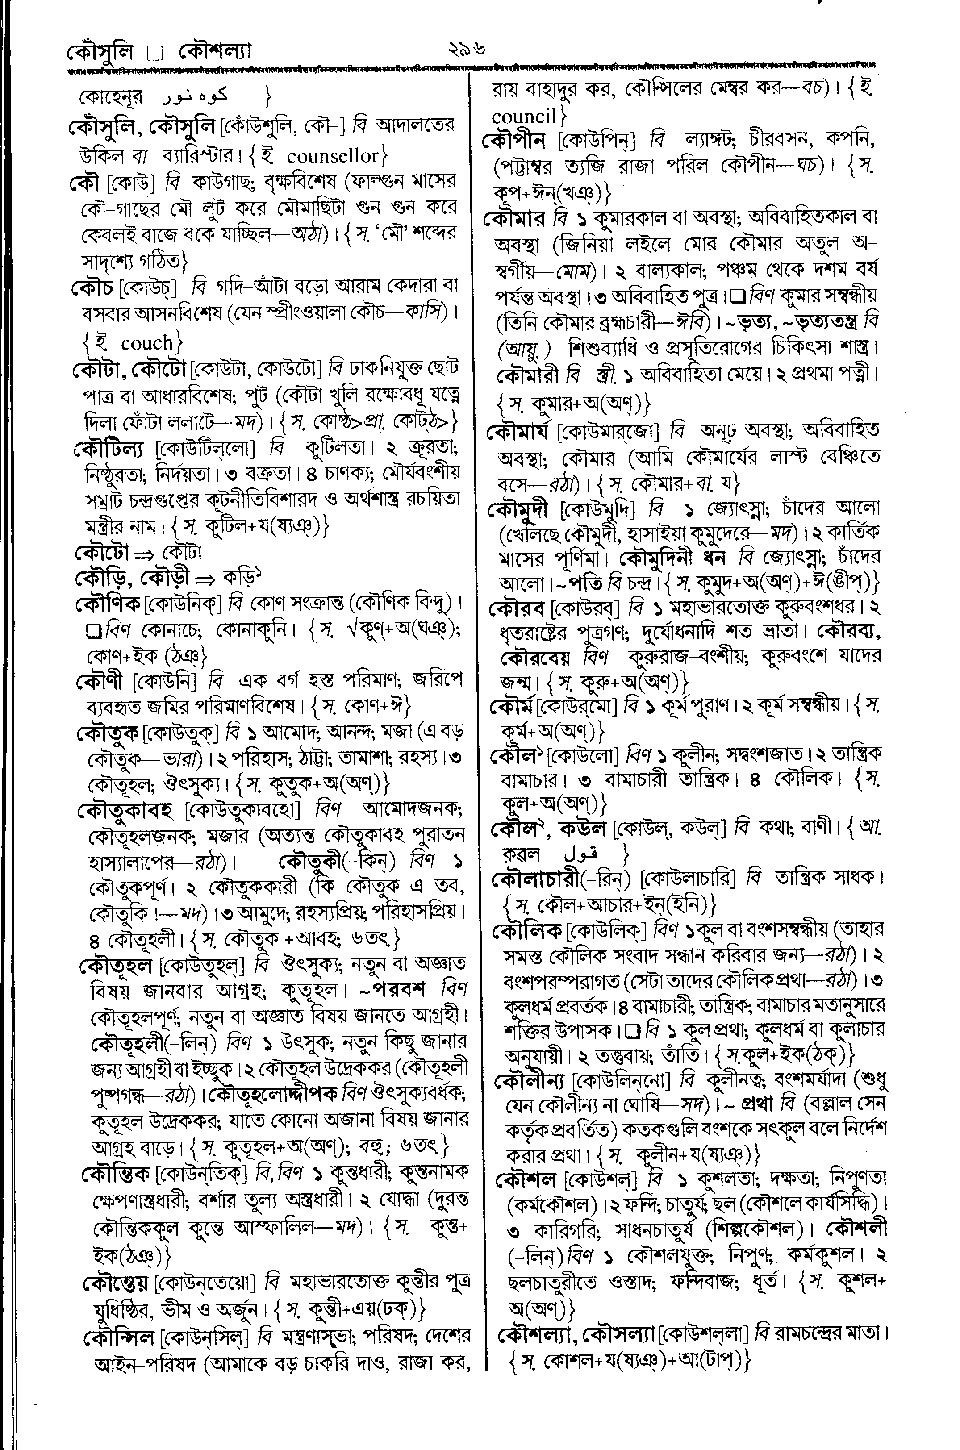 কৌঁসুলি ⎵ কৌশল্যা
২৯৬
কোহেনূর کوہ نور }
কৌঁসুলি, কৌসুলি [কোঁউশুলি, কৌ–] বি আদালতের
উকিল বা ব্যারিস্টার। {ই counsellor}
কৌ [কোউ] বি কাউগাছ; বৃক্ষবিশেষ (ফাল্গুন মাসের
কৌ-গাছের মৌ লুট করে মৌমাছিটা গুন গুন করে
কেবলই বাজে বকে যাচ্ছিল—অঠা)। {স. ‘মৌ’ শব্দের
সাদৃশ্যে গঠিত}
কৌচ [কোউচ্] বি গদি-আঁটা বড়ো আরাম কেদারা বা
বসবার আসনবিশেষ (যেন স্প্রীংওয়ালা কৌচ—কাসি)।
{ই couch}
কৌটা, কৌটো [কোউটা, কোউটো] বি ঢাকনিযুক্ত ছোট
পাত্র বা আধারবিশেষ; পুট (কৌটা খুলি রক্ষোবধূ যত্নে
দিলা ফোঁটা ললাটে—মদ)। {স. কোষ্ঠ>প্রা. কোটঠ>}
কৌটিল্য [কোউটিল্‌লো] বি কুটিলতা। ২ ক্রূরতা;
নিষ্ঠুরতা; নির্দয়তা। ৩ বক্রতা। ৪ চাণক্য; মৌর্যবংশীয়
সম্রাট চন্দ্রগুপ্তের কূটনীতিবিশারদ ও অর্থশাস্ত্র রচয়িতা
মন্ত্রীর নাম। {স. কুটিল+য(ষ্যঞ)}
কৌটো ⇒ কৌটা
কৌড়ি, কৌড়ী ⇒ কড়ি১
কৌণিক [কোউনিক্] বি কোণ সংক্রান্ত (কৌণিক বিন্দু)।
□বিণ কোনাচে; কোনাকুনি। {স. √কূণ্+অ(ঘঞ);
কোণ+ইক (ঠঞ)}
কৌণী [কোউনি] বি এক বর্গ হস্ত পরিমাণ; জরিপে
ব্যবহৃত জমির পরিমাণবিশেষ। {স. কোণ+ঈ}
কৌতুক [কোউতুক্] বি ১ আমোদ; আনন্দ; মজা (এ বড়
কৌতুক—ভারা)। ২ পরিহাস; ঠাট্টা; তামাশা; রহস্য। ৩
কৌতূহল; ঔৎসুক্য। {স. কুতুক+অ(অণ্)}
কৌতুকাবহ [কোউতুকাবহো] বিণ আমোদজনক;
কৌতূহলজনক; মজার (অত্যন্ত কৌতুকাবহ পুরাতন
হাস্যালাপের—রঠা)। কৌতুকী(-কিন) বিণ ১
কৌতুকপূর্ণ। ২ কৌতুককারী (কি কৌতুক এ তব,
কৌতুকি !—মদ)। ৩ আমুদে; রহস্যপ্রিয়; পরিহাসপ্রিয়।
৪ কৌতূহলী। {স. কৌতুক +আবহ; ৬তৎ}
কৌতূহল [কোউতুহল্] বি ঔৎসুক্য; নতুন বা অজ্ঞাত
বিষয় জানবার আগ্রহ; কুতূহল। ~পরবশ বিণ
কৌতূহলপূর্ণ; নতুন বা অজ্ঞাত বিষয় জানতে আগ্রহী।
কৌতূহলী(-লিন্) বিণ ১ উৎসুক; নতুন কিছু জানার
জন্য আগ্রহী বা ইচ্ছুক। ২ কৌতূহল উদ্রেককর (কৌতূহলী
পুষ্পগন্ধ—রঠা)। কৌতূহলোদ্দীপক বিণ ঔৎসুক্যবর্ধক;
কুতূহল উদ্রেককর; যাতে কোনো অজানা বিষয় জানার
আগ্রহ বাড়ে। {স. কুতূহল+অ(অণ্); বহু.; ৬তৎ}
কৌন্তিক [কোউন্‌তিক্] বি, বিণ ১ কুন্তধারী; কুন্তনামক
ক্ষেপণাস্ত্রধারী; বর্শার তুল্য অস্ত্রধারী। ২ যোদ্ধা (দুরন্ত
কৌন্তিককূল কুন্তে আস্ফালিল—মদ)। {স. কুন্ত+
ইক(ঠঞ)}
কৌন্তেয় [কোউন্‌তেয়ো] বি মহাভারতোক্ত কুন্তীর পুত্র
যুধিষ্ঠির, ভীম ও অর্জুন। {স. কুন্তী+এয়(ঢক্)}
কৌন্সিল [কোউন্‌সিল্] বি মন্ত্রণাসভা; পরিষদ; দেশের
আইন-পরিষদ (আমাকে বড় চাকরি দাও, রাজা কর,
রায় বাহাদুর কর, কৌন্সিলের মেম্বর কর—বচ)। {ই
council}
কৌপীন [কোউপিন্] বি ল্যাঙ্গট; চীরবসন, কপনি,
(পট্টাম্বর ত্যজি রাজা পরিল কৌপীন—ঘচ)। {স.
কূপ+ঈন(খঞ)}
কৌমার বি ১ কুমারকাল বা অবস্থা; অবিবাহিতকাল বা
অবস্থা (জিনিয়া লইলে মোর কৌমার অতুল অ-
স্বর্গীয়—মোম)। ২ বাল্যকাল; পঞ্চম থেকে দশম বর্ষ
পর্যন্ত অবস্থা। ৩ অবিবাহিত পুত্র। □ বিণ কুমার সম্বন্ধীয়
(তিনি কৌমার ব্রহ্মচারী—ঈবি)। ~ভৃত্য, ~ভৃত্যতন্ত্র বি
(আয়ু.) শিশুব্যাধি ও প্রসূতিরোগের চিকিৎসা শাস্ত্র।
কৌমারী বি স্ত্রী. ১ অবিবাহিতা মেয়ে। ২ প্রথমা পত্নী।
{স. কুমার+অ(অণ্)}
কৌমার্য [কোউমারজো] বি অনূঢ় অবস্থা; অবিবাহিত
অবস্থা; কৌমার (আমি কৌমার্যের লাস্ট বেঞ্চিতে
বসে—রঠা)। {স. কৌমার+বা. য}
কৌমুদী [কোউমুদি] বি ১ জ্যোৎস্না; চাঁদের আলো
(খেলিছে কৌমুদী, হাসাইয়া কুমুদেরে—মদ)। ২ কার্তিক
মাসের পূর্ণিমা। কৌমুদিনী ধন বি জ্যোৎস্না; চাঁদের
আলো। ~পতি বি চন্দ্র। {স. কুমুদ+অ(অণ্)+ঈ(ঙীপ্)}
কৌরব [কোউরব্] বি ১ মহাভারতোক্ত কুরুবংশধর। ২
ধৃতরাষ্ট্রের পুত্রগণ; দুর্যোধনাদি শত ভ্রাতা। কৌরব্য,
কৌরবেয় বিণ কুরুরাজ-বংশীয়; কুরুবংশে যাদের
জন্ম। {স. কুরু+অ(অণ্)}
কৌর্ম [কোউর্‌মো] বি ১ কূর্ম পুরাণ। ২ কূর্ম সম্বন্ধীয়। {স.
কূর্ম+অ(অণ্)}
কৌল১ [কোউলো] বিণ ১ কুলীন; সদ্বংশজাত। ২ তান্ত্রিক
বামাচার। ৩ বামাচারী তান্ত্রিক। ৪ কৌলিক। {স.
কুল+অ(অণ্)}
কৌল২, কউল [কোউল্, কউল্] বি কথা; বাণী। {আ.
ক়ৱল قول }
কৌলাচারী(-রিন্) [কোউলাচারি] বি তান্ত্রিক সাধক।
{স. কৌল+আচার+ইন্(ইনি)}
কৌলিক [কোউলিক্] বিণ ১কুল বা বংশসম্বন্ধীয় (তাহার
সমস্ত কৌলিক সংবাদ সন্ধান করিবার জন্য—রঠা)। ২
বংশপরম্পরাগত (সেটা তাদের কৌলিক প্রথা—রঠা)। ৩
কুলধর্ম প্রবর্তক। ৪ বামাচারী; তান্ত্রিক; বামাচার মতানুসারে
শক্তির উপাসক। □ বি ১ কুল প্রথা; কুলধর্ম বা কুলাচার
অনুযায়ী। ২ তন্তুবায়; তাঁতি। {স.কুল+ইক(ঠক্)}
কৌলীন্য [কোউলিন্‌নো] বি কুলীনত্ব; বংশমর্যাদা (শুধু
যেন কৌলীন্য না ঘোষি—সদ)। ~ প্রথা বি (বল্লাল সেন
কর্তৃক প্রবর্তিত) কতকগুলি বংশকে সৎকুল বলে নির্দেশ
করার প্রথা। {স. কুলীন+য(ষ্যঞ)}
কৌশল [কোউশল্] বি ১ কুশলতা; দক্ষতা; নিপুণতা
(কর্মকৌশল)। ২ ফন্দি; চাতুর্য; ছল (কৌশলে কার্যসিদ্ধি)।
৩ কারিগরি; সাধনচাতুর্য (শিল্পকৌশল)। কৌশলী
(-লিন্) বিণ ১ কৌশলযুক্ত; নিপুণ; কর্মকুশল। ২
ছলচাতুরীতে ওস্তাদ; ফন্দিবাজ; ধূর্ত। {স. কুশল+
অ(অণ্)}
কৌশল্যা, কৌসল্যা [কোউশল্‌লা] বি রামচন্দ্রের মাতা।
{স. কোশল+য(ষ্যঞ)+আ(টাপ্)}